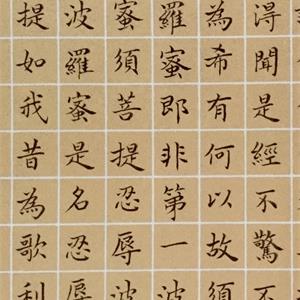 得聞是經不驚不
為希有何以故須
羅蜜即非第一波
蜜須菩提忍辱波
波羅蜜是名忍辱
提如我昔為歌利